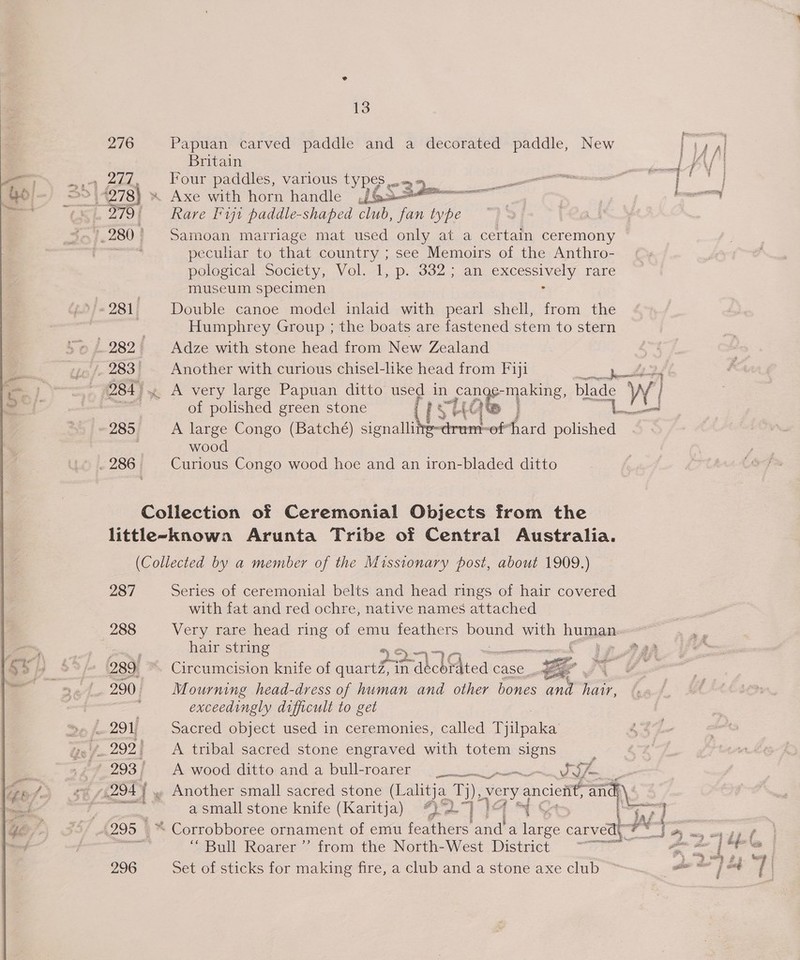 13
276 Papuan carved paddle and a decorated paddle, New
Britain
277 Four paddles, various types
278 Axe with horn handle
279 Rare Fiji paddle-shaped club, fan type
280 Samoan marriage mat used only at a certain ceremony
peculiar to that country ; see Memoirs of the Anthro-
pological Society, Vol. 1, p. 332 ; an excessively rare
museum specimen
281 Double canoe model inlaid with pearl shell, from the
Humphrey Group ; the boats are fastened stem to stern
282 Adze with stone head from New Zealand
283 Another with curious chisel-like head from Fiji
284 A very large Papuan ditto used in canoe-making, blade W
of polished green stone
285 A large Congo (Batché) signalling-drum of hard polished
wood
286 Curious Congo wood hoe and an iron-bladed ditto
Collection of Ceremonial Objects from the
little-known Arunta Tribe of Central Australia.
(Collected by a member of the Missionary post, about 1909.)
287 Series of ceremonial belts and head rings of hair covered
with fat and red ochre, native names attached
288 Very rare head ring of emu feathers bound with human
hair string
289 Circumcision knife of quartz, in decorated case
290 Mourning head-dress of human and other bones and hair,
exceedingly difficult to get
291 Sacred object used in ceremonies, called Tjilpaka
292 A tribal sacred stone engraved with totem signs
293 A wood ditto and a bull-roarer
294 Another small sacred stone (Lalitja Tj), very ancient, and
a small stone knife (Karitja)
295 Corrobboree ornament of emu feathers and a large carved
“ Bull Roarer ” from the North-West District
296 Set of sticks for making fire, a club and a stone axe club